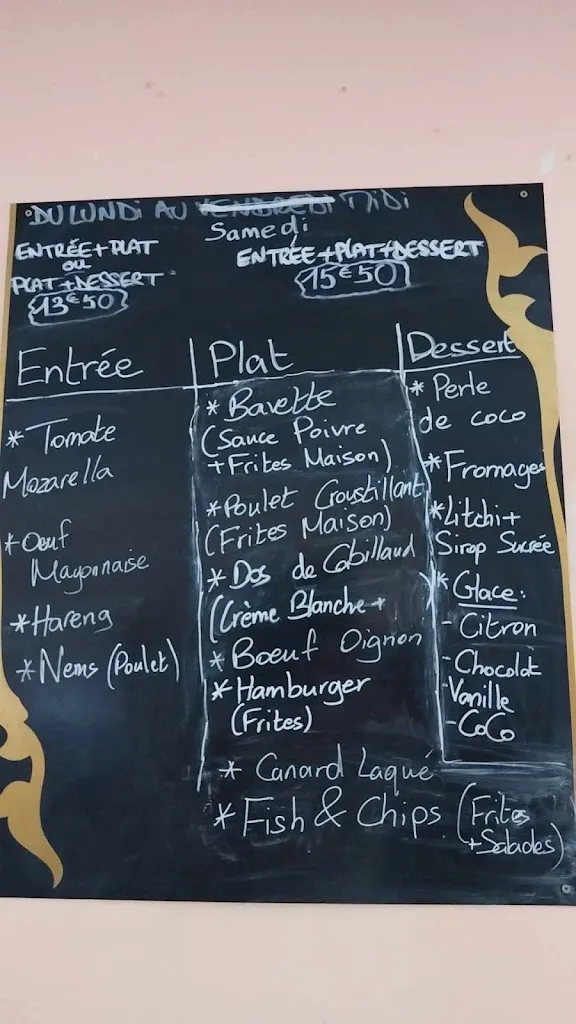 DU LUNDI AU VENDREDI MIDI
Samedi
ENTRÉE+PLAT
OU
PLAT+DESSERT
13€50
ENTRÉE+PLAT+DESSERT
15€50
Entrée
* Tomate
Mozarella
* Oeuf
Mayonnaise
* Hareng
* Nems (Poulet)
Plat
* Bavette
(Sauce Poivre
+Frites Maison)
* Poulet Croustillant
(Frites Maison)
* Dos de Cabillaud
(Crème Blanche + )
* Boeuf Oignon
* Hamburger
(Frites)
* Canard Laqué
* Fish & Chips (Frites
+Salades)
Dessert
* Perle
de coco
* Fromages
* Litchi+
Sirop Sucrée
* Glace:
- Citron
- Chocolat
- Vanille
- CoCo